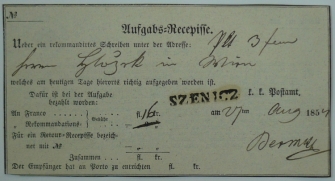 №
Aufgabs-Recepisse.
Ueber ein rekommandirtes Schreiben unter der Adresse:
Herrn in Wien
welches am heutigen Tage hierorts richtig aufgegeben worden ist.
Dafür ist bei der Aufgabe bezahlt worden:
SZENICZ k. k. Postamt,
An Franco fl. 16 kr. am 27 Aug 185
„ Rekommandations- Gebühr fl. kr.
Für ein Retour-Recepisse bezeichnet mit № fl. kr.
Zusammen fl. kr.
Der Empfänger hat an Porto zu entrichten fl. kr.